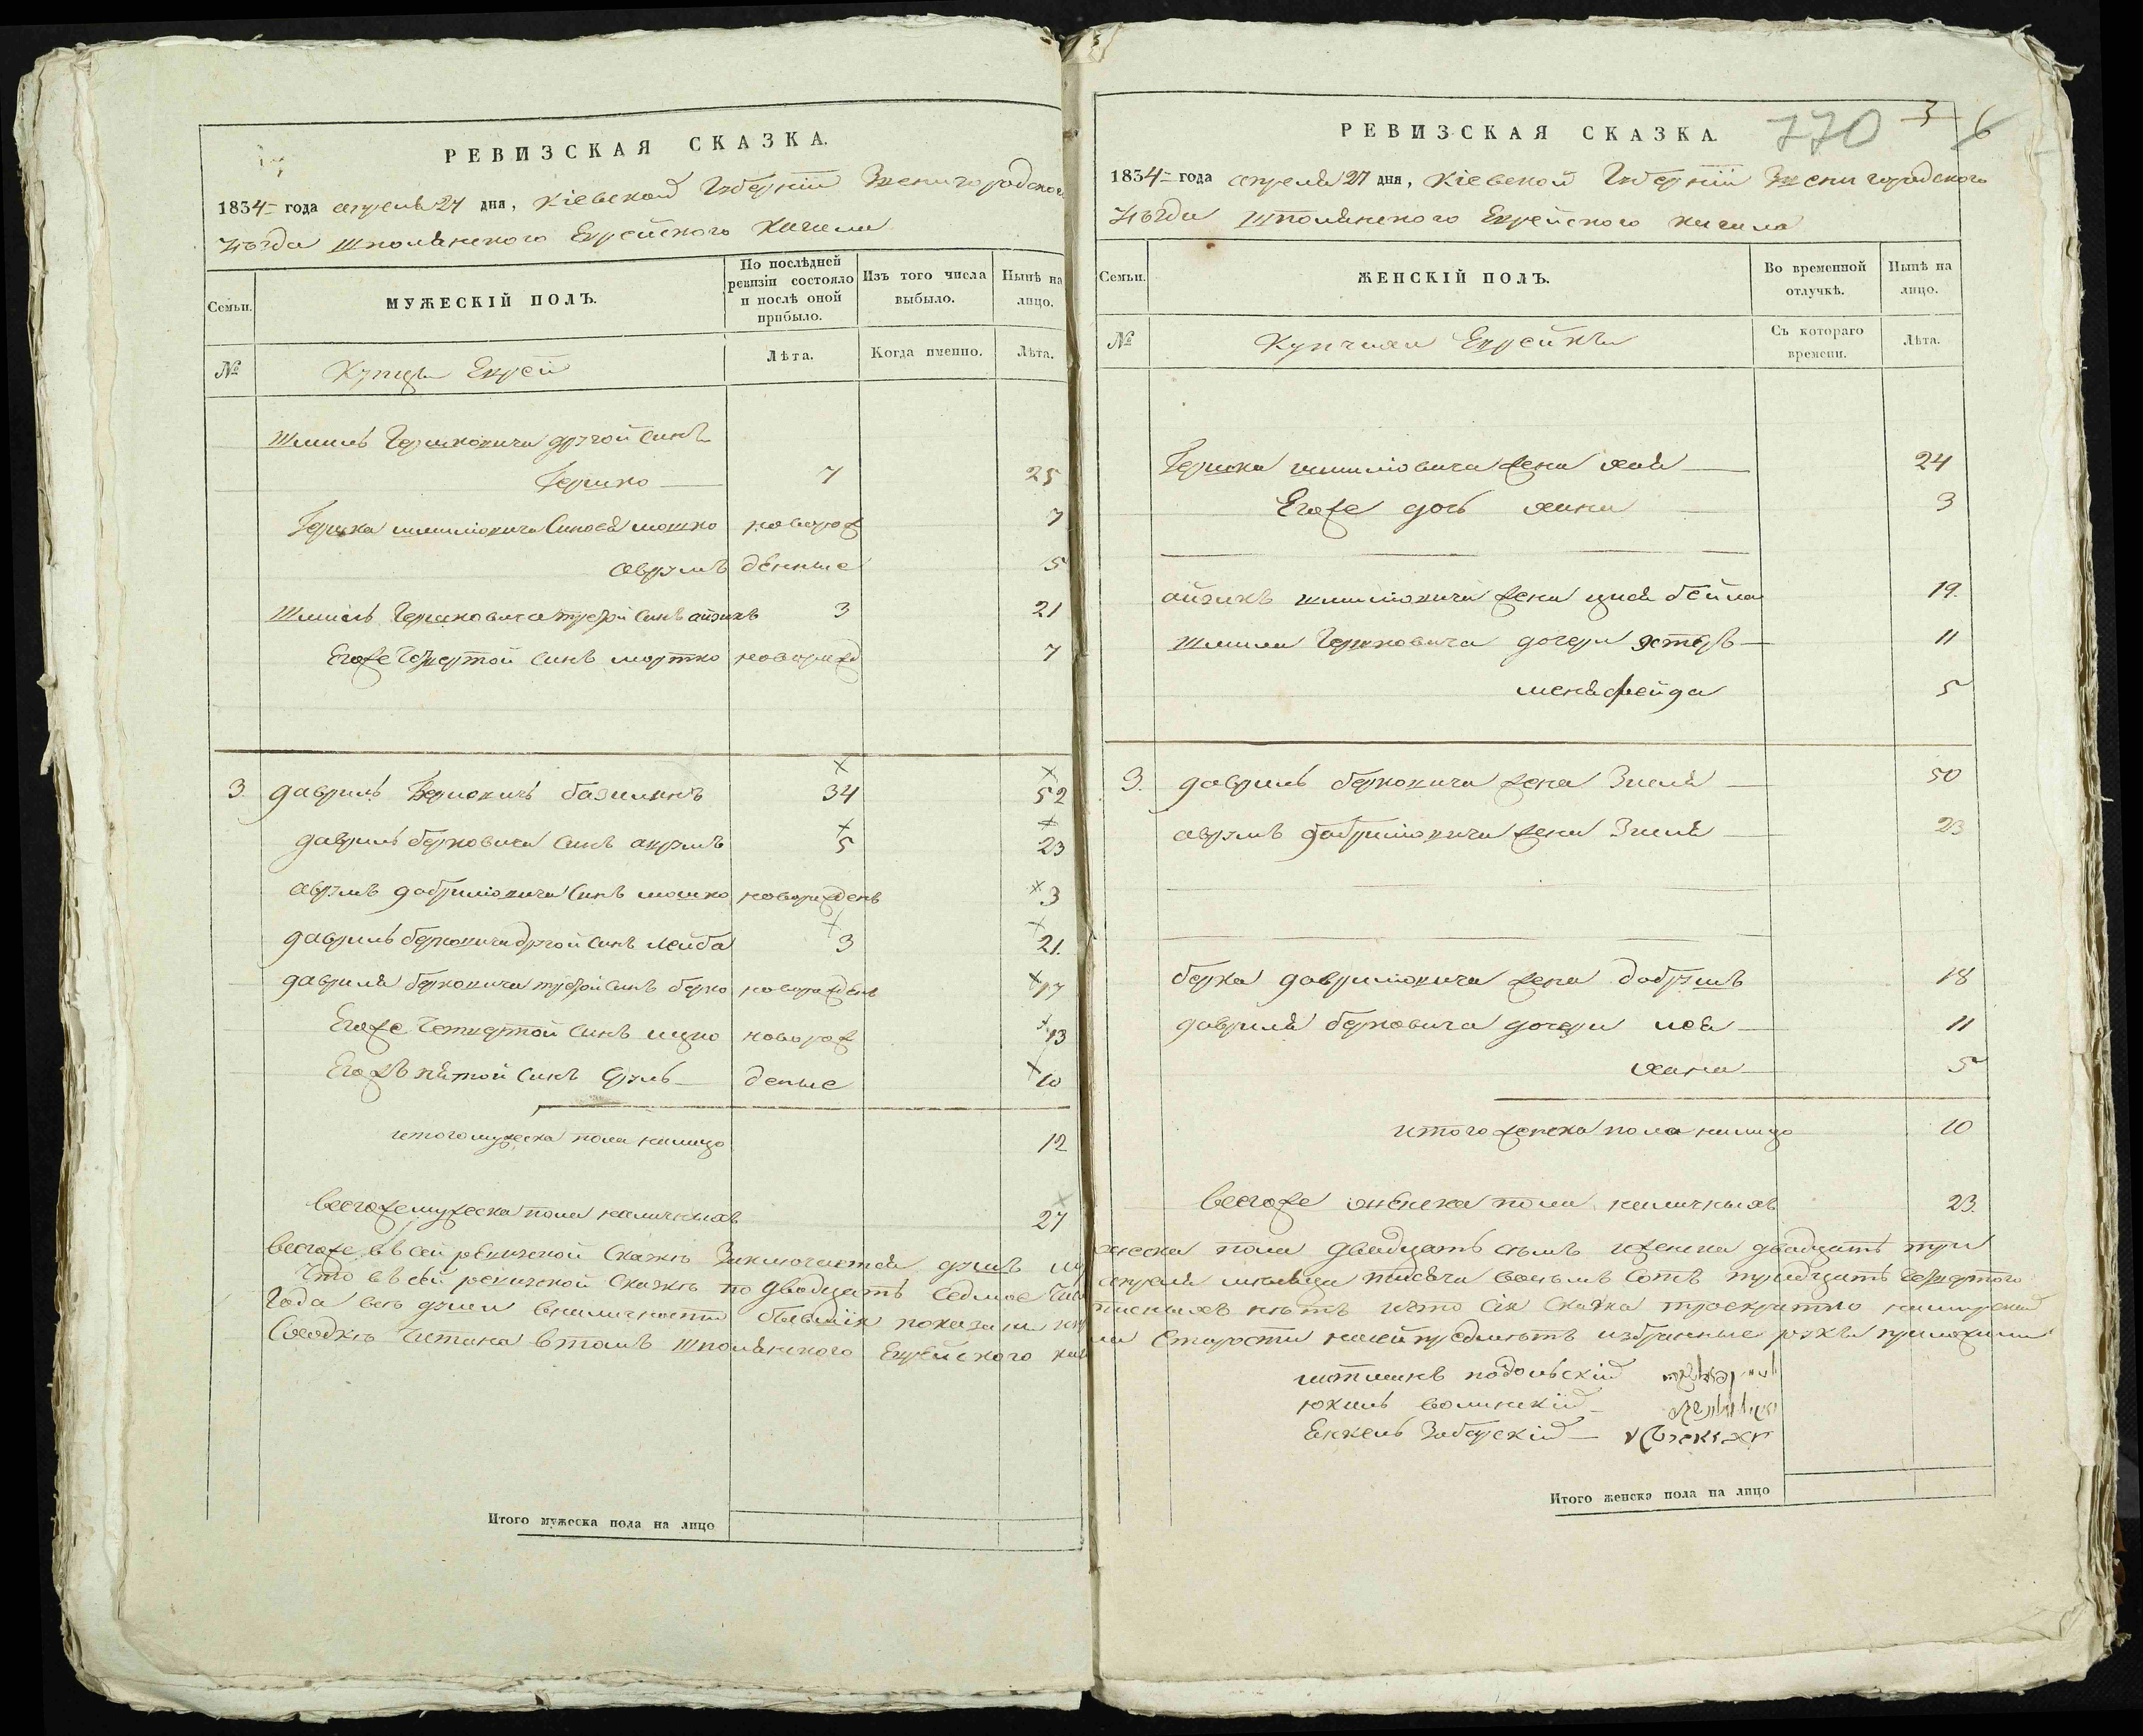 РЕВИЗСКАЯ СКАЗКА.
1834 года апреля 27 дня, Кіевской Губерніи Звенигородского
уѣзда Шполянского Еврейского Кагала
Семьи.
МУЖЕСКІЙ ПОЛЪ.
По послѣдней ревизіи состояло и послѣ оной прибыло.
Изъ того числа выбыло.
Нынѣ на лицо.
№
Купцы Евреи
Лѣта.
Когда именно.
Лѣта.
Шмиль Гершковича другой синъ
Гершко 7 25
Гершка шмиліовича Синовя мошко новорож 7
аврумъ денные 5
Шмиль Гершковича третой синъ айзикъ 3 21
Егоже Четвертой синъ мортко новорожд 7
3. гавриль Берковичъ базилинъ 34 52
гавриль берковича синъ аврумъ 5 23
аврумъ гавриліовича синъ мошко новорожденъ 3
гавриль берковича другой синъ лейба 3 21.
гавриля берковича третой синъ берко новорожденъ 17
Егоже Четвертой синъ ицко новорож 13
Егожъ пятой синъ сруль деные 10
итого мужеска пола налицо 12
Всегоже мужеска пола наличныхъ 27
РЕВИЗСКАЯ СКАЗКА.
770 3 6
1834 года апреля 27 дня, Кіевской Губерніи Звенигородского
уѣзда Шполянского Еврейского кагала
Семьи.
ЖЕНСКІЙ ПОЛЪ.
Во временной отлучкѣ.
Нынѣ на лицо.
№
Купчихи Еврейки
Съ котораго времени.
Лѣта.
Гершка шмиліовича жена хая 24
Егоже дочь хана 3
айзикъ шмиліовича жена цися бейла 19.
Шмиля Гершковича дочери эстеръ 11
меня фейда 5
3. гавриль берковича жена Зисля 50
аврумъ гавриліовича жена Зисля 23
берка гавриліовича жена добрушъ 18
гавриля берковича дочери лея 11
хана 5
итого женска пола налицо 10
Всегоже женска пола наличныхъ 23.
Всегоже въ сей ревизской Сказкѣ Заключается душъ мужеска пола двадцать семь и женска двадцать три
Что въ сей ревизской Сказкѣ по двадцать Седмое число апреля месяца тисяча восемъ сотъ тридцать четвертого
Года всѣ души вналичности бывшіи показаны и прописныхъ нѣтъ и что Сія Сказка троекратно намирской
Сходкѣ читана втомъ Шполянского Еврейского старости избранные руки приложили
подольскій
юкиль волинскій
Енкель Заберскій
Итого мужеска пола на лицо
Итого женска пола на лицо